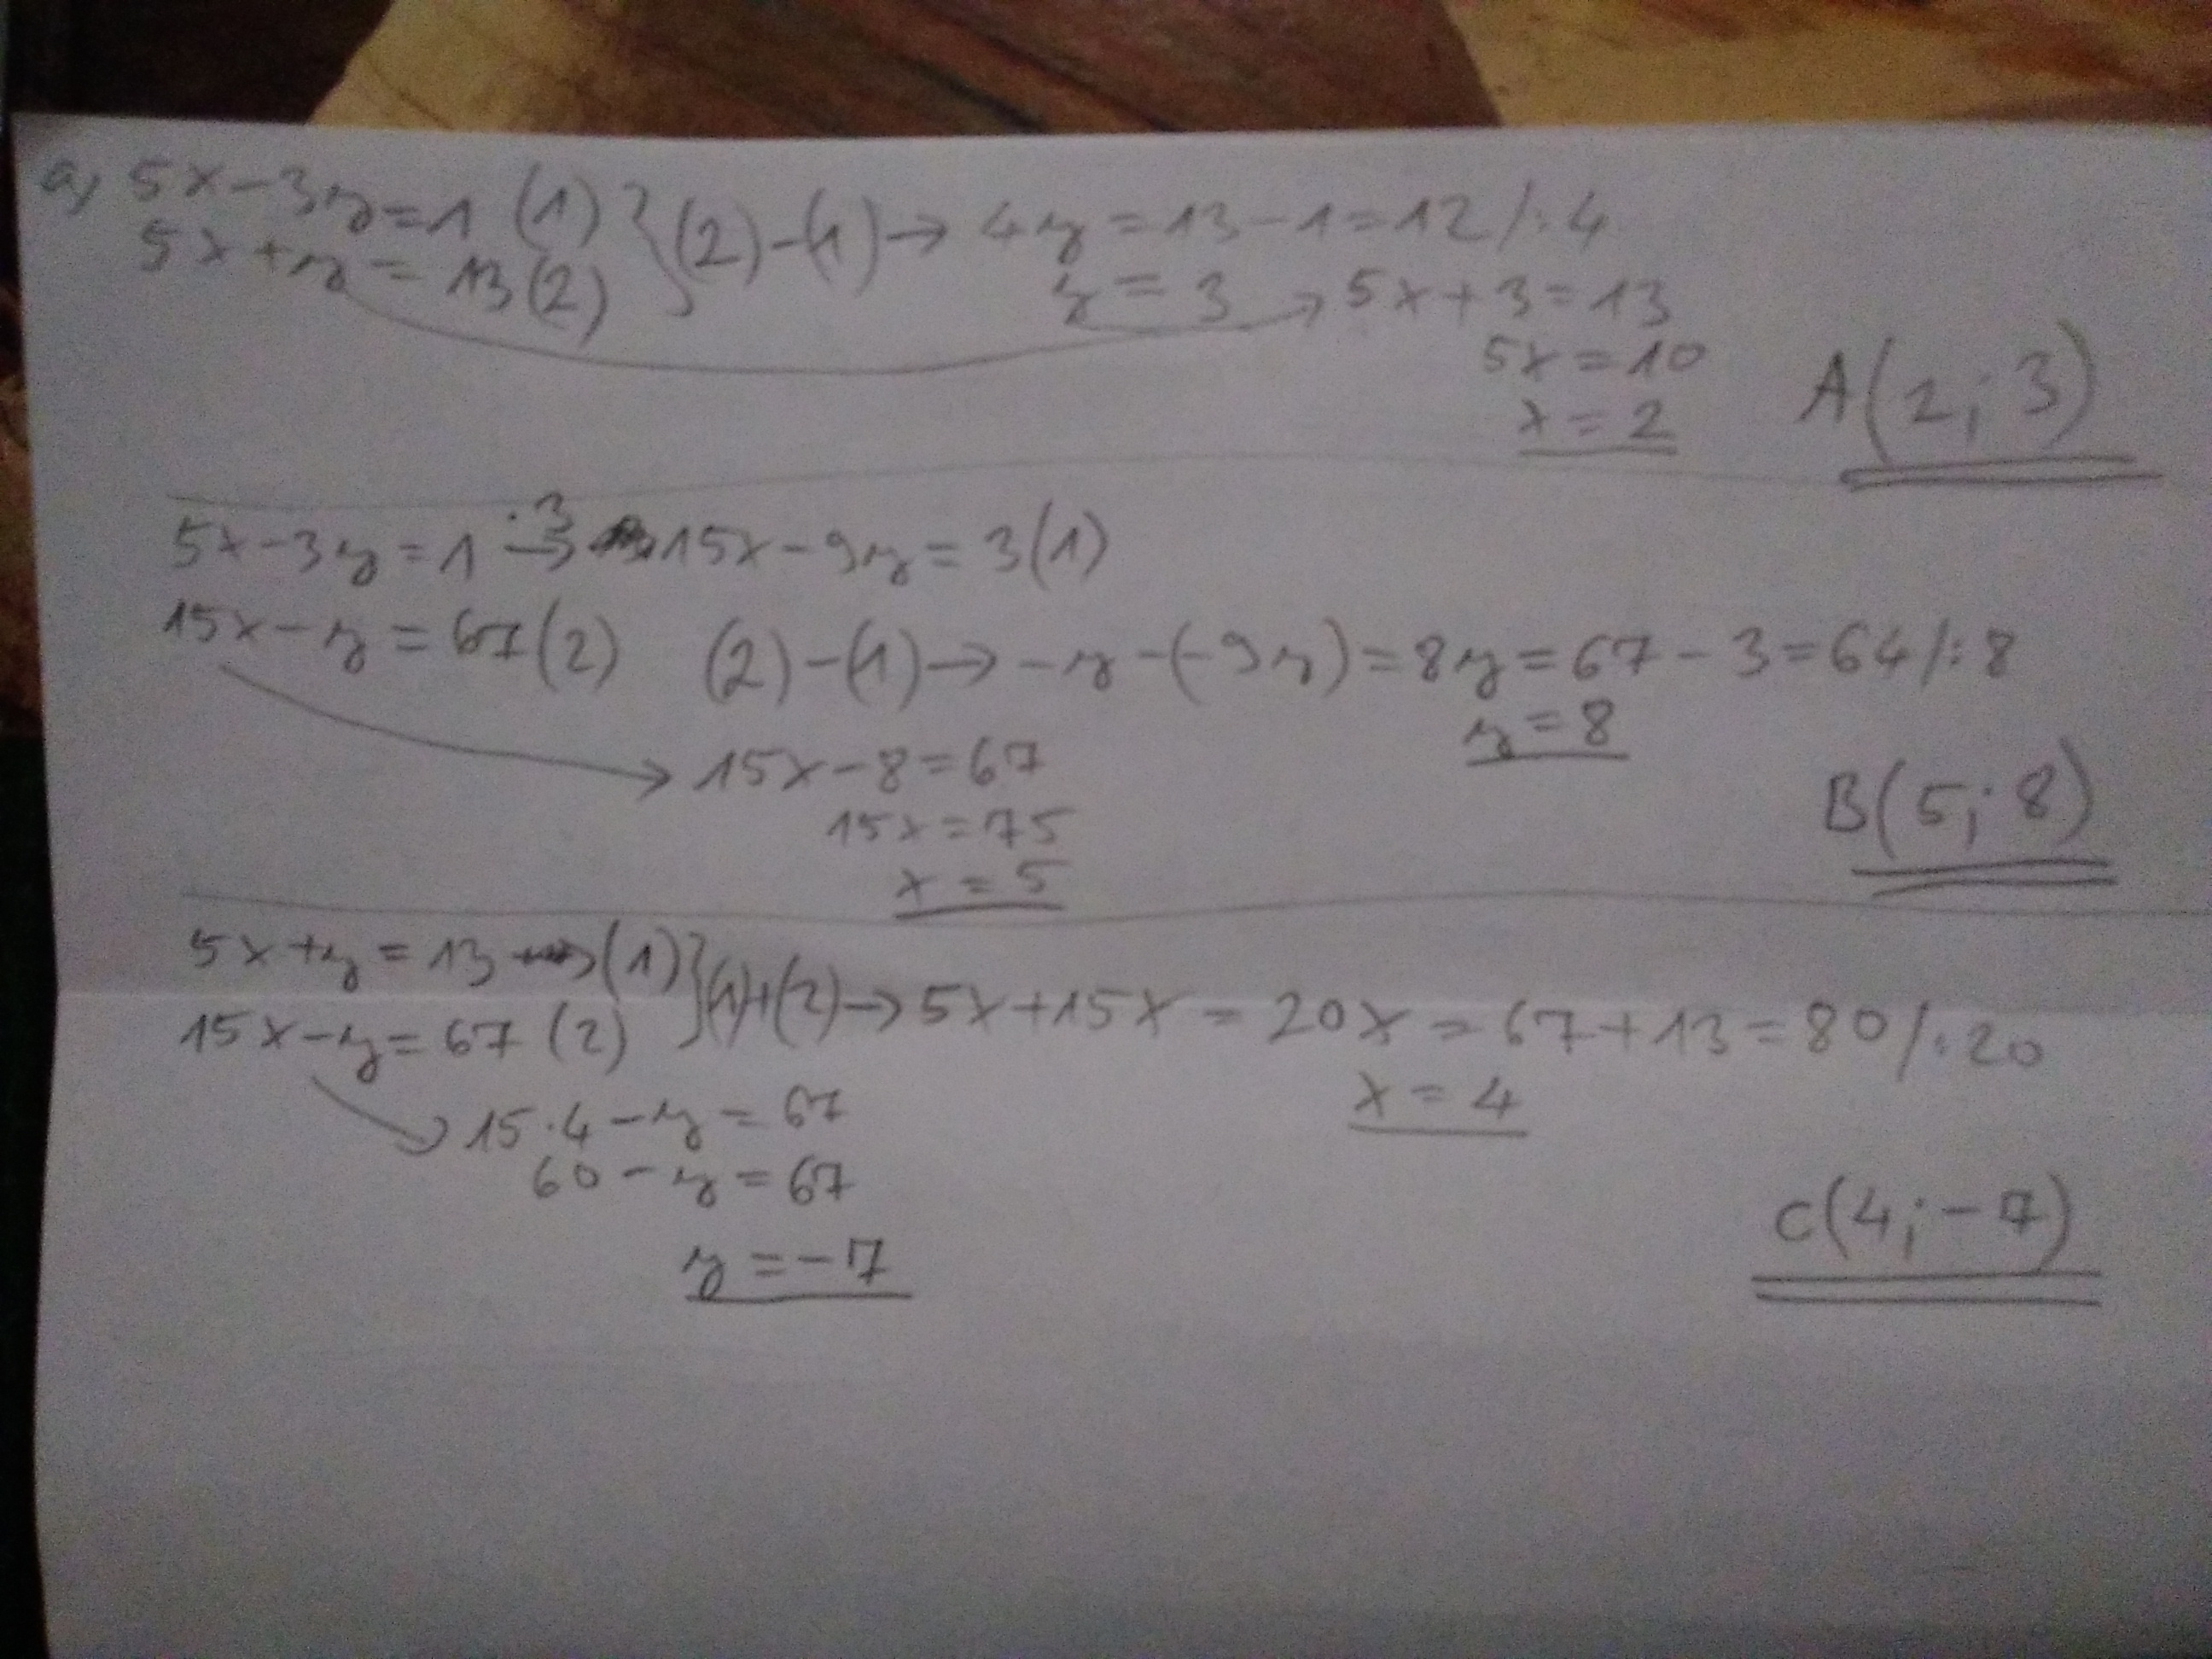 a, 5x-3y=1 (1) } (2)-(1) → 4y = 13-1=12 /:4
5x+y = 13 (2)
y = 3 → 5x+3=13
5x=10
x=2
A(2;3)
5x-3y=1 ·3→ 15x-9y=3 (1)
15x-y=67 (2) (2)-(1) → -y-(-9y)=8y=67-3=64 /:8
y=8
15x-8=67
15x=75
x=5
B(5;8)
5x+y=13 (1) } (1)+(2) → 5x+15x=20x=67+13=80 /:20
15x-y=67 (2)
x=4
15·4-y=67
60-y=67
y=-7
C(4;-7)